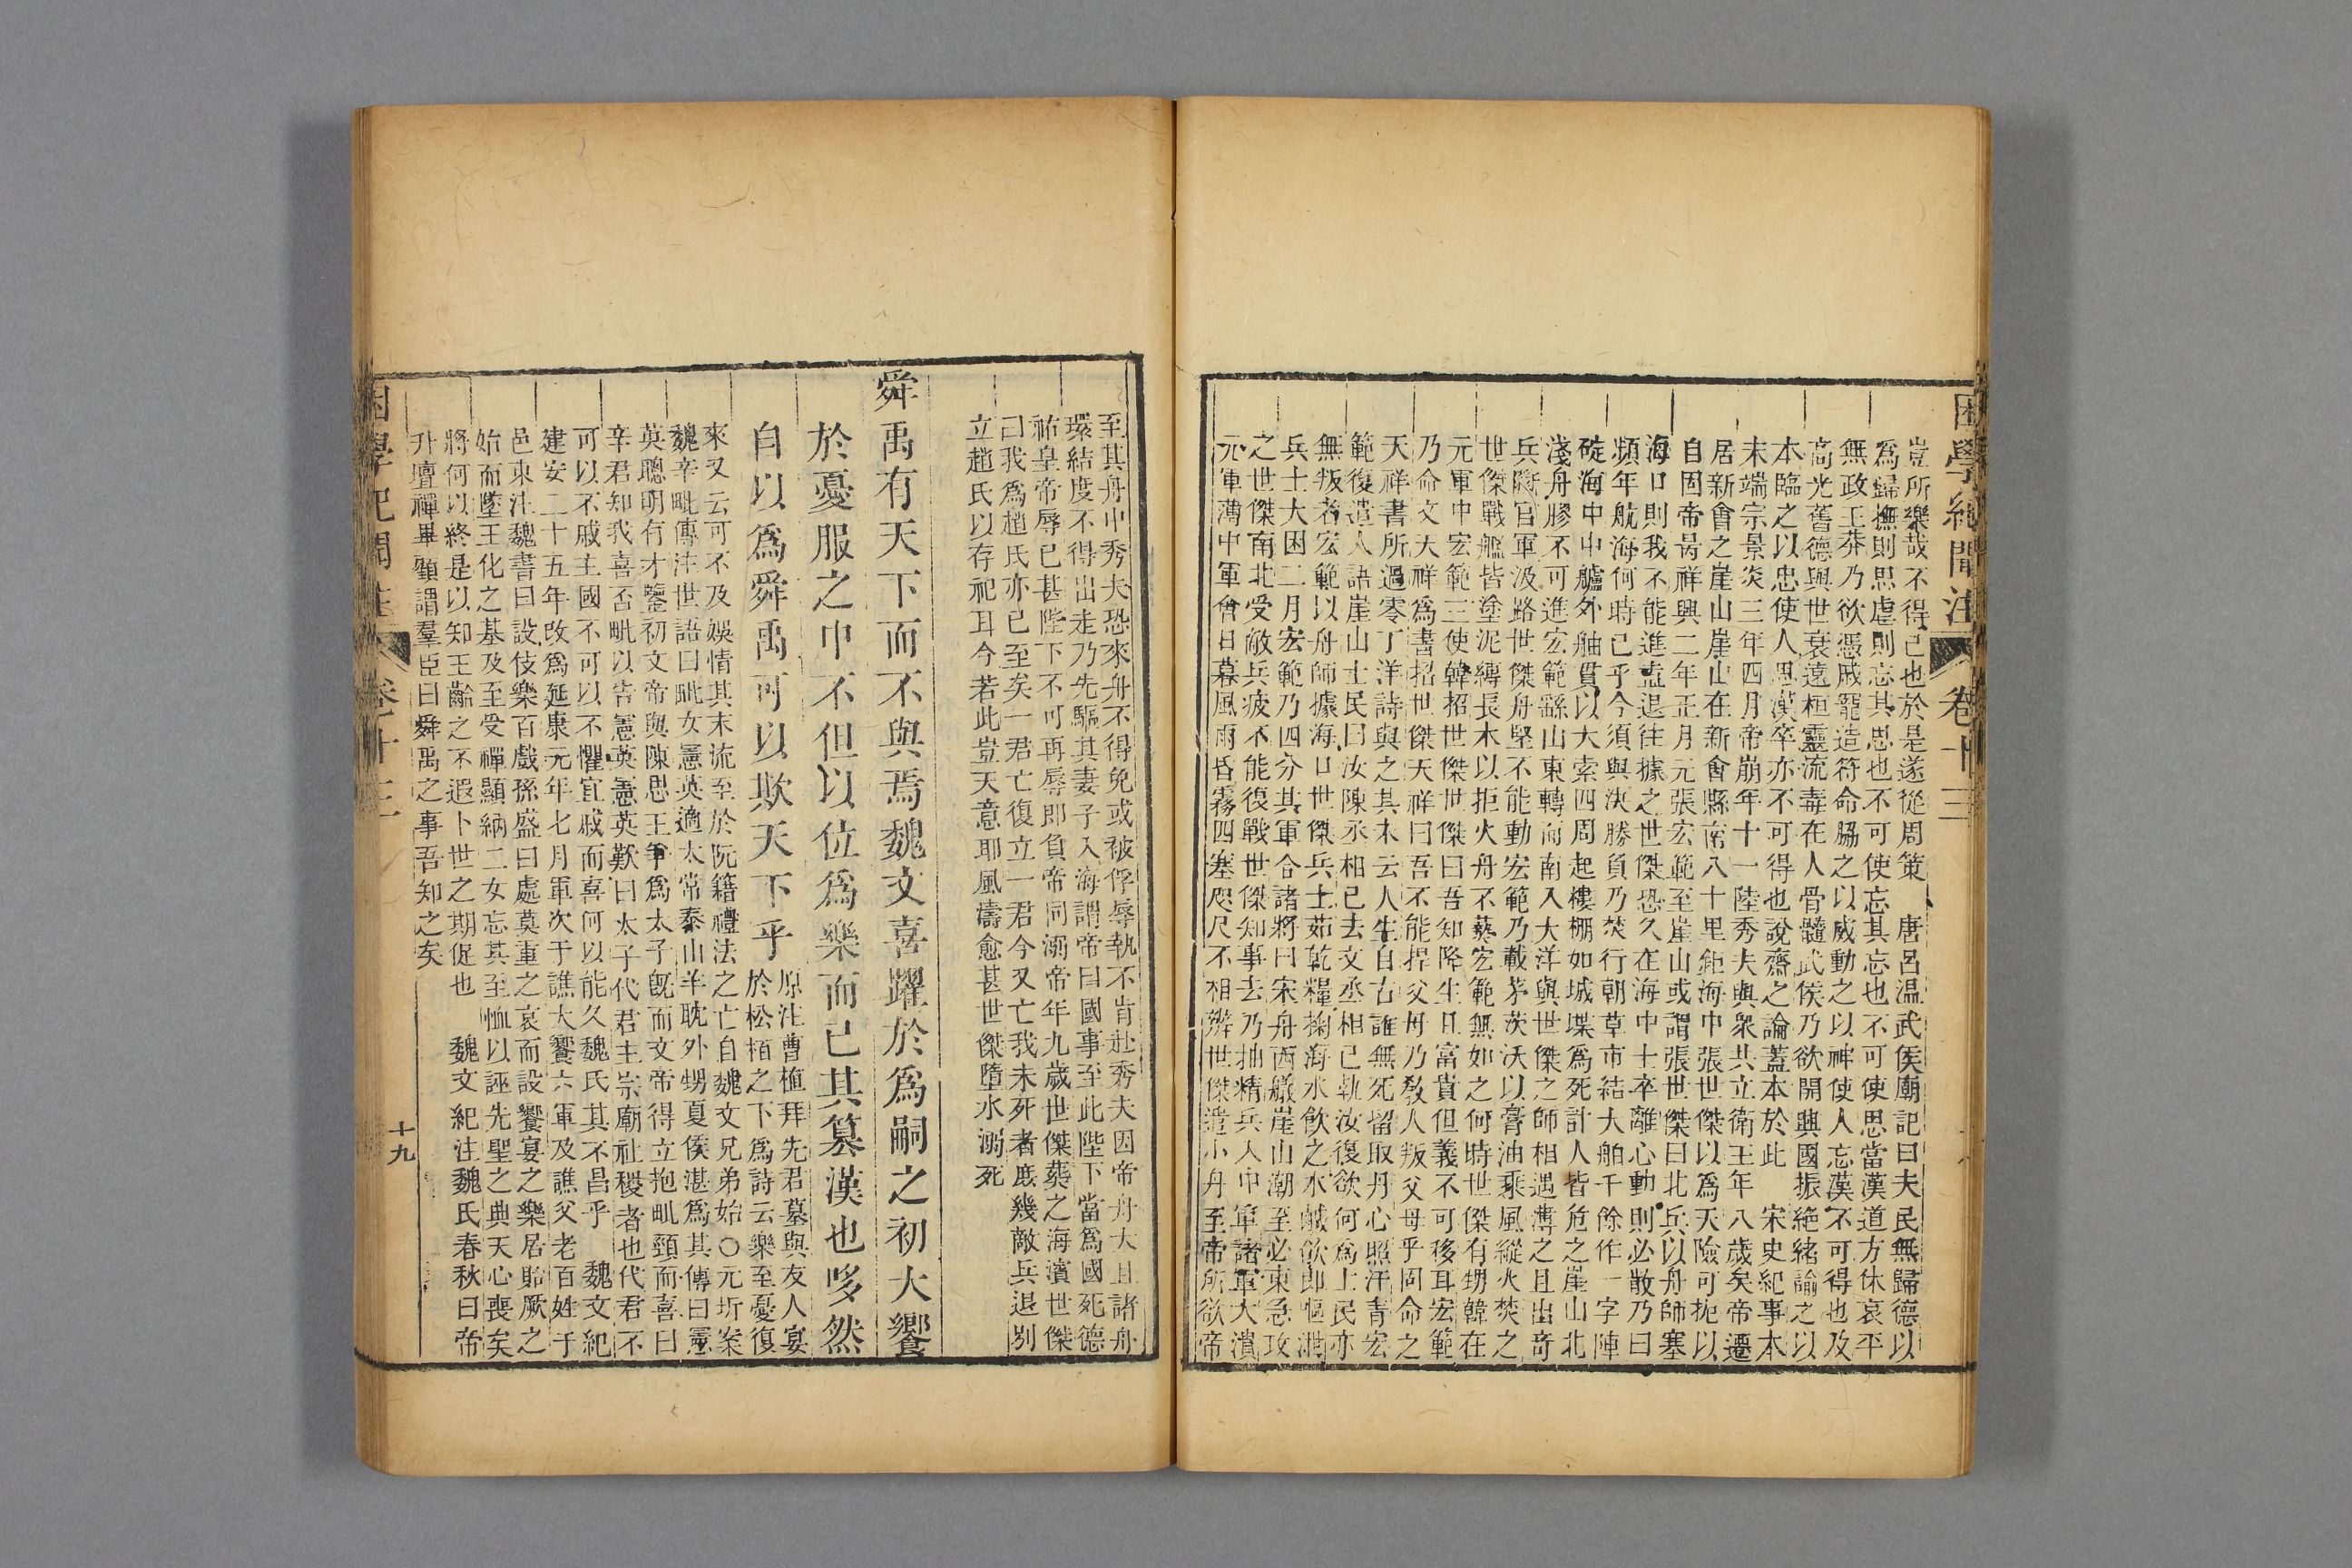 困學紀聞注 卷十三
豈所樂哉不得已也於是遂從周策 唐呂温武侯廟記曰夫民無歸德以
為歸撫則思虐則忘其思也不可使忘其忘也不可使思當漢道方休哀平
無政王莽乃欲憑戚寵造符命脇之以威動之以神使人忘漢不可得也及
高光舊德與世衰遠桓靈流毒在人骨髓武侯乃欲開興國振絶緒諭之以
本臨之以忠使人思漢卒亦不可得也說齋之論蓋本於此 宋史紀事本
末端宗景炎三年四月帝崩年十一陸秀夫與衆共立衛王年八歲矣帝遷
居新會之崖山崖山在新會縣南八十里鉅海中張世傑以為天險可扼以
自固帝昺祥興二年正月元張宏範至崖山或謂張世傑曰北兵以舟師塞
海口則我不能進盍退往據之世傑恐久在海中士卒離心動則必散乃曰
頻年航海何時已乎今須與決勝負乃焚行朝草市結大舶千餘作一字陣
碇海中中艫外舳貫以大索四周起樓棚如城堞為死計人皆危之崖山北
淺舟膠不可進宏範繇山東轉而南入大洋與世傑之師相遇薄之且出奇
兵斷官軍汲路世傑舟堅不能動宏範乃載茅茨沃以膏油乘風縱火焚之
世傑戰艦皆塗泥縛長木以拒火舟不爇宏範無如之何時世傑有甥韓在
元軍中宏範三使韓招世傑世傑曰吾知降生且富貴但義不可移耳宏範
乃命文天祥為書招世傑天祥曰吾不能捍父母乃敎人叛父母乎固命之
天祥書所過零丁洋詩與之其末云人生自古誰無死留取丹心照汗青宏
範復遣人語崖山士民曰汝陳丞相已去文丞相已執汝復欲何為士民亦
無叛者宏範以舟師據海口世傑兵士茹乾糧掬海水飮之水鹹飮即嘔泄
兵士大困二月宏範乃四分其軍合諸將曰宋舟西艤崖山潮至必東急攻
之世傑南北受敵兵疲不能復戰世傑知事去乃抽精兵入中軍諸軍大潰
元軍薄中軍會日暮風雨昏霧四塞咫尺不相辨世傑遣小舟至帝所欲帝
至其舟中秀夫恐來舟不得免或被俘辱執不肯赴秀夫因帝舟大且諸舟
環結度不得出走乃先驅其妻子入海謂帝曰國事至此陛下當為國死德
祐皇帝辱已甚陛下不可再辱即負帝同溺帝年九歲世傑葬之海濱世傑
曰我為趙氏亦已至矣一君亡復立一君今又亡我未死者庶幾敵兵退別
立趙氏以存祀耳今若此豈天意耶風濤愈甚世傑墮水溺死
舜禹有天下而不與焉魏文喜躍於為嗣之初大饗
於憂服之中不但以位為樂而已其篡漢也哆然
自以為舜禹可以欺天下乎 原注曹植拜先君墓與友人宴
於松栢之下為詩云樂至憂復
來又云可不及娛情其末流至於阮籍禮法之亡自魏文兄弟始〇元圻案
魏辛毗傳注世語曰毗女憲英適太常泰山羊耽外甥夏侯湛為其傳曰憲
英聰明有才鑒初文帝與陳思王爭為太子既而文帝得立抱毗頸而喜曰
辛君知我喜否毗以告憲英憲英歎曰太子代君主宗廟社稷者也代君不
可以不戚主國不可以不懼宜戚而喜何以能久魏氏其不昌乎 魏文紀
建安二十五年改為延康元年七月軍次于譙大饗六軍及譙父老百姓于
邑東注魏書曰設伎樂百戲孫盛曰處莫重之哀而設饗宴之樂居貽厥之
始而墜王化之基及至受禪顯納二女忘其至恤以誣先聖之典天心喪矣
將何以終是以知王齡之不遐卜世之期促也 魏文紀注魏氏春秋曰帝
升壇禪畢顧謂羣臣曰舜禹之事吾知之矣
困學紀聞注 卷十三 十九